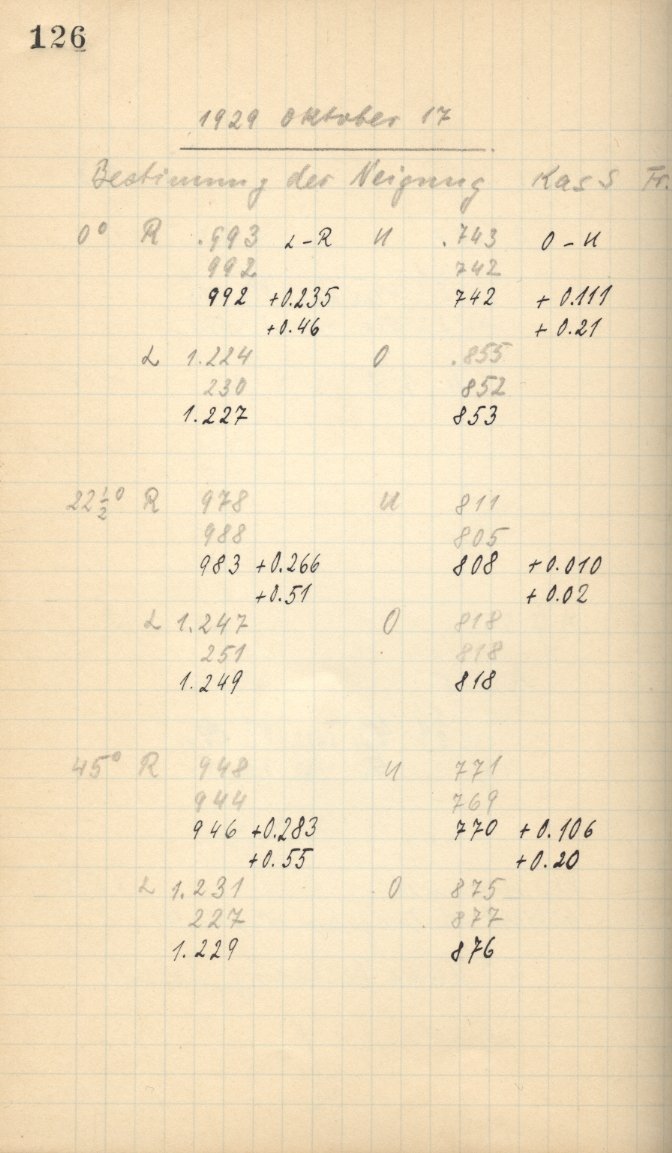 126
1929 Oktober 17
Bestimmung der Neigung Kass Fr.
0° R .993 L-R U .743 O-U
992 742
992 +0.235 742 +0.111
+0.46 +0.21
L 1.224 O .855
230 852
1.227 853
22½° R 978 U 811
988 805
983 +0.266 808 +0.010
+0.51 +0.02
L 1.247 O 818
251 818
1.249 818
45° R 948 U 771
944 769
946 +0.283 770 +0.106
+0.55 +0.20
L 1.231 O 875
227 877
1.229 876